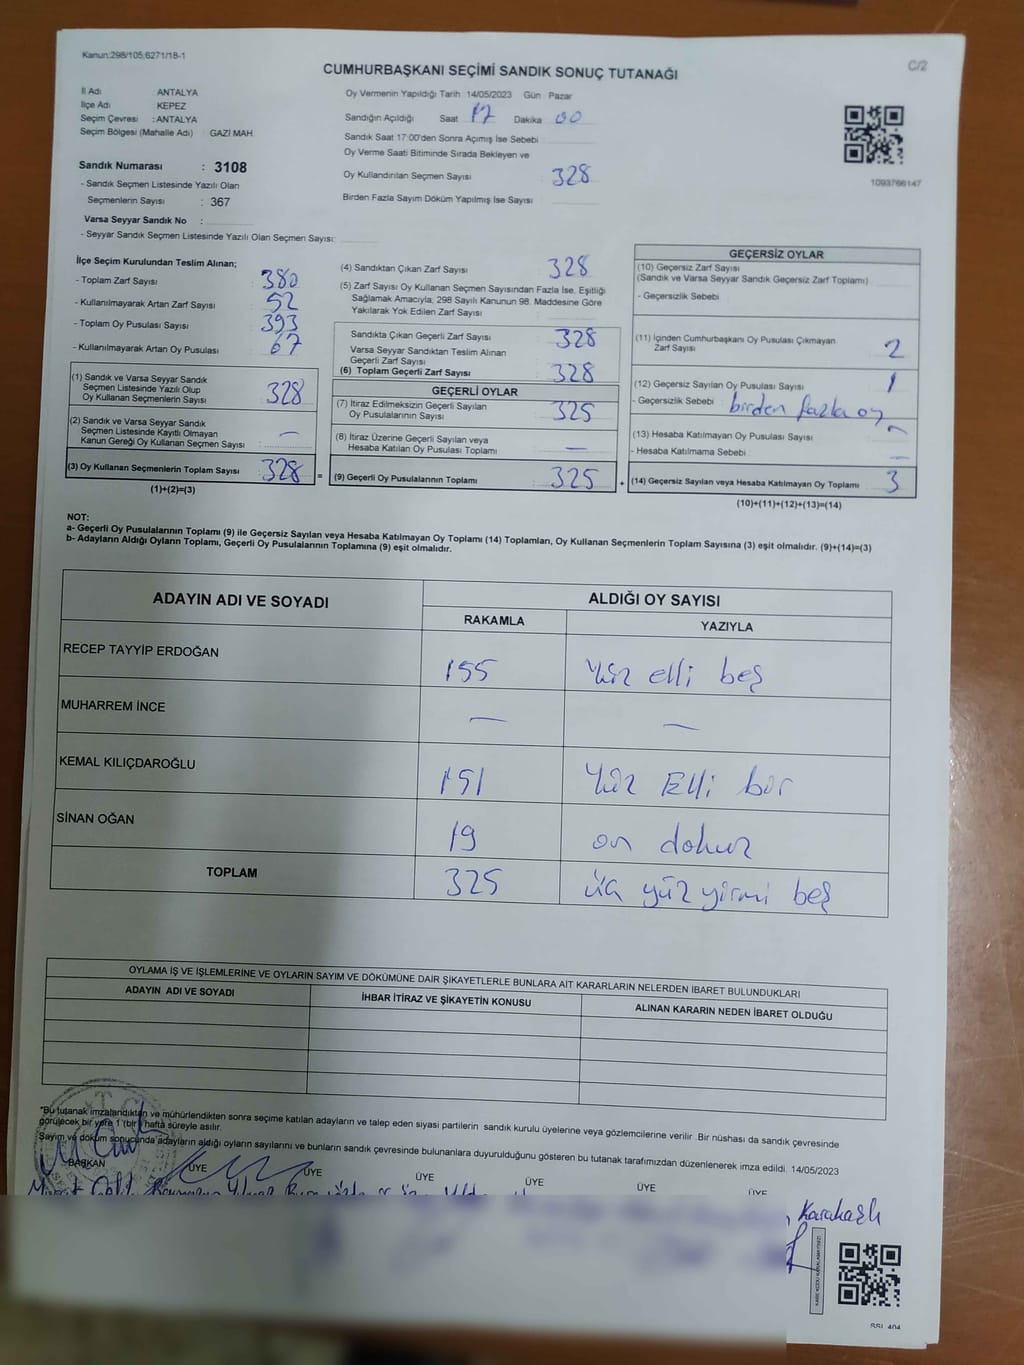 Kanun:298/105;6271/18-1
C/2
CUMHURBAŞKANI SEÇİMİ SANDIK SONUÇ TUTANAĞI
İl Adı ANTALYA
İlçe Adı KEPEZ
Seçim Çevresi : ANTALYA
Seçim Bölgesi (Mahalle Adı) : GAZİ MAH
Sandık Numarası : 3108
- Sandık Seçmen Listesinde Yazılı Olan
Seçmenlerin Sayısı : 367
Varsa Seyyar Sandık No :
- Seyyar Sandık Seçmen Listesinde Yazılı Olan Seçmen Sayısı:
Oy Vermenin Yapıldığı Tarih 14/05/2023 Gün Pazar
Sandığın Açıldığı Saat 17 Dakika 00
Sandık Saat 17:00'den Sonra Açımış İse Sebebi
Oy Verme Saati Bitiminde Sırada Bekleyen ve
Oy Kullandırılan Seçmen Sayısı 328
Birden Fazla Sayım Döküm Yapılmış İse Sayısı
1093766147
İlçe Seçim Kurulundan Teslim Alınan;
- Toplam Zarf Sayısı 380
- Kullanılmayarak Artan Zarf Sayısı 52
- Toplam Oy Pusulası Sayısı 393
- Kullanılmayarak Artan Oy Pusulası 67
(1) Sandık ve Varsa Seyyar Sandık
Seçmen Listesinde Yazılı Olup
Oy Kullanan Seçmenlerin Sayısı 328
(2) Sandık ve Varsa Seyyar Sandık
Seçmen Listesinde Kayıtlı Olmayan
Kanun Gereği Oy Kullanan Seçmen Sayısı —
(3) Oy Kullanan Seçmenlerin Toplam Sayısı : 328 =
(1)+(2)=(3)
(4) Sandıktan Çıkan Zarf Sayısı 328
(5) Zarf Sayısı Oy Kullanan Seçmen Sayısından Fazla İse, Eşitliği
Sağlamak Amacıyla; 298 Sayılı Kanunun 98. Maddesine Göre
Yakılarak Yok Edilen Zarf Sayısı
Sandıkta Çıkan Geçerli Zarf Sayısı 328
Varsa Seyyar Sandıktan Teslim Alınan
Geçerli Zarf Sayısı
(6) Toplam Geçerli Zarf Sayısı 328
GEÇERLİ OYLAR
(7) İtiraz Edilmeksizin Geçerli Sayılan
Oy Pusulalarının Sayısı 325
(8) İtiraz Üzerine Geçerli Sayılan veya
Hesaba Katılan Oy Pusulası Toplamı —
(9) Geçerli Oy Pusulalarının Toplamı : 325 +
GEÇERSİZ OYLAR
(10) Geçersiz Zarf Sayısı
(Sandık ve Varsa Seyyar Sandık Geçersiz Zarf Toplamı)
- Geçersizlik Sebebi
(11) İçinden Cumhurbaşkanı Oy Pusulası Çıkmayan
Zarf Sayısı 2
(12) Geçersiz Sayılan Oy Pusulası Sayısı 1
- Geçersizlik Sebebi birden fazla oy
(13) Hesaba Katılmayan Oy Pusulası Sayısı —
- Hesaba Katılmama Sebebi —
(14) Geçersiz Sayılan veya Hesaba Katılmayan Oy Toplamı 3
(10)+(11)+(12)+(13)=(14)
NOT:
a- Geçerli Oy Pusulalarının Toplamı (9) ile Geçersiz Sayılan veya Hesaba Katılmayan Oy Toplamı (14) Toplamları, Oy Kullanan Seçmenlerin Toplam Sayısına (3) eşit olmalıdır. (9)+(14)=(3)
b- Adayların Aldığı Oyların Toplamı, Geçerli Oy Pusulalarının Toplamına (9) eşit olmalıdır.
ADAYIN ADI VE SOYADI ALDIĞI OY SAYISI
RAKAMLA YAZIYLA
RECEP TAYYİP ERDOĞAN 155 Yüz elli beş
MUHARREM İNCE — —
KEMAL KILIÇDAROĞLU 151 Yüz Elli bir
SİNAN OĞAN 19 on dokuz
TOPLAM 325 üç yüz yirmi beş
OYLAMA İŞ VE İŞLEMLERİNE VE OYLARIN SAYIM VE DÖKÜMÜNE DAİR ŞİKAYETLERLE BUNLARA AİT KARARLARIN NELERDEN İBARET BULUNDUKLARI
ADAYIN ADI VE SOYADI İHBAR İTİRAZ VE ŞİKAYETİN KONUSU ALINAN KARARIN NEDEN İBARET OLDUĞU
*Bu tutanak imzalandıktan ve mühürlendikten sonra seçime katılan adayların ve talep eden siyasi partilerin sandık kurulu üyelerine veya gözlemcilerine verilir .Bir nüshası da sandık çevresinde
görülecek bir yere 1 (bir) hafta süreyle asılır.
Sayım ve döküm sonucunda adayların aldığı oyların sayılarını ve bunların sandık çevresinde bulunanlara duyurulduğunu gösteren bu tutanak tarafımızdan düzenlenerek imza edildi. 14/05/2023
BAŞKAN ÜYE ÜYE ÜYE ÜYE ÜYE ÜYE
Karakaşlı